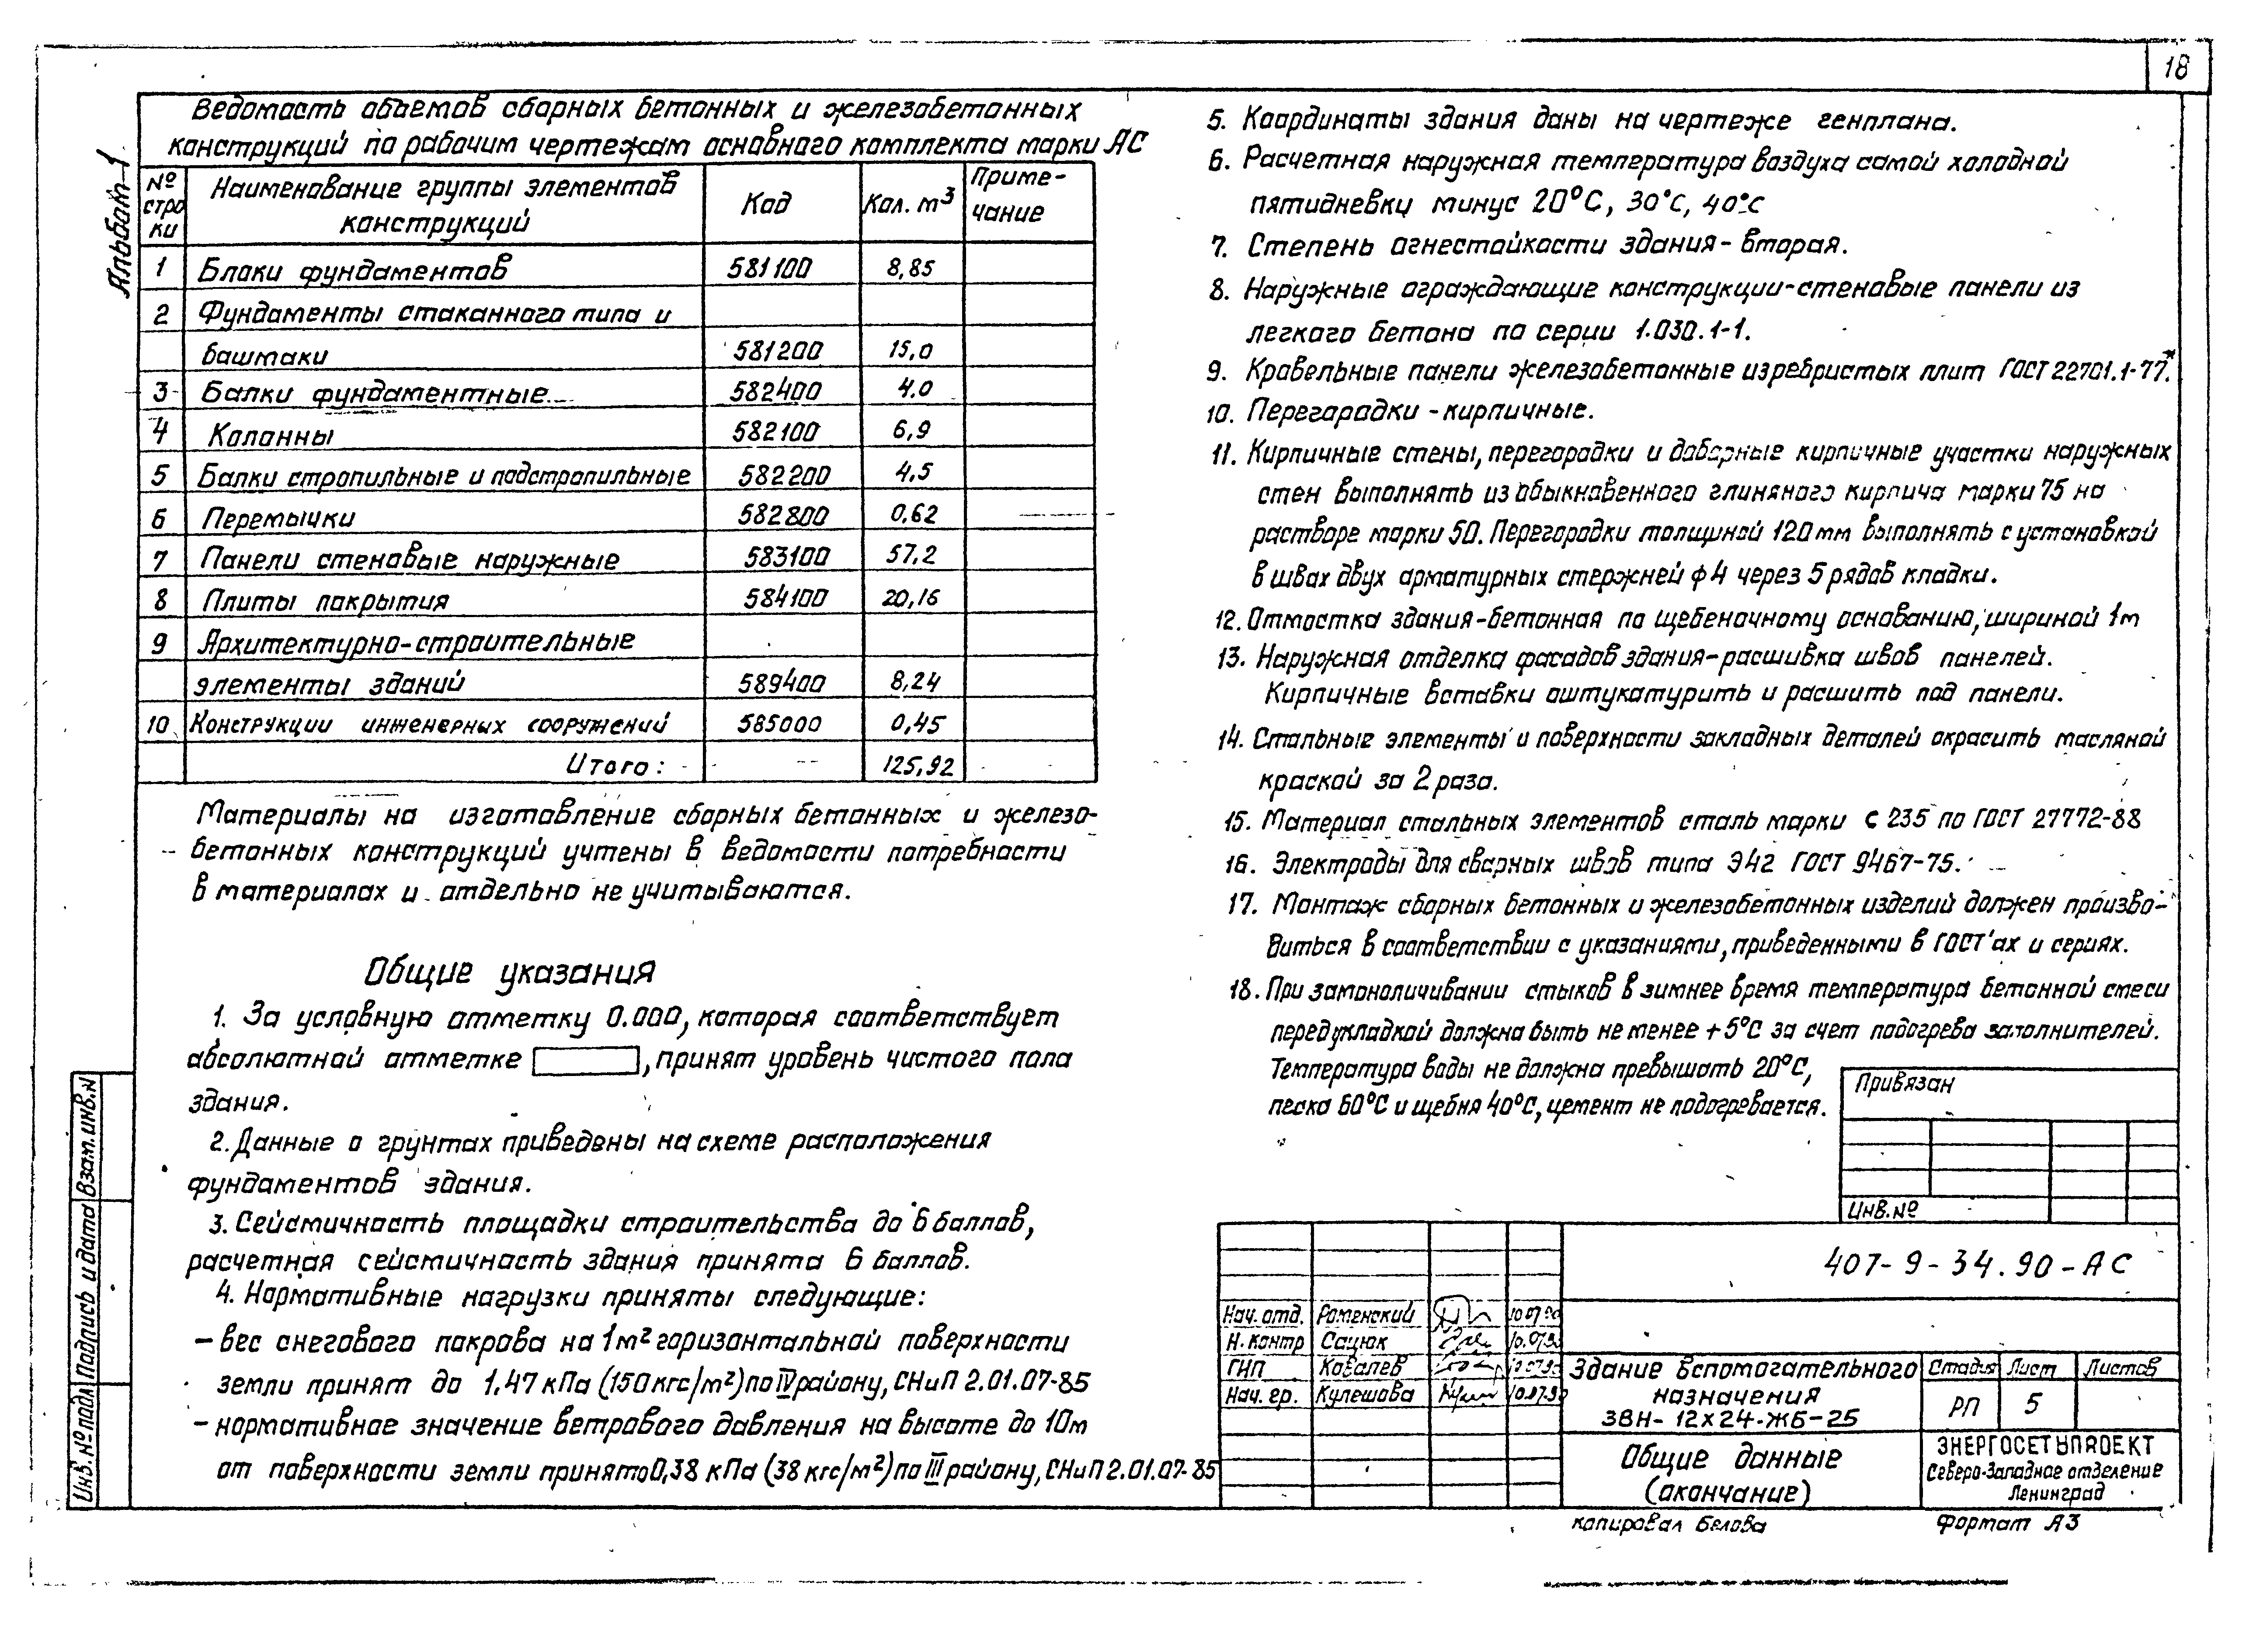 18
Альбом 1
Ведомость объемов сборных бетонных и железобетонных
конструкций по рабочим чертежам основного комплекта марки АС
№ строки | Наименование группы элементов конструкций | Код | Кол. м³ | Примечание
1 Блоки фундаментов 581100 8,85
2 Фундаменты стаканного типа и
башмаки 581200 15,0
3 Балки фундаментные 582400 4.0
4 Колонны 582100 6,9
5 Балки стропильные и подстропильные 582200 4,5
6 Перемычки 582800 0,62
7 Панели стеновые наружные 583100 57,2
8 Плиты покрытия 584100 20,16
9 Архитектурно-строительные
элементы зданий 589400 8,24
10 Конструкции инженерных сооружений 585000 0,45
Итого: 125,92
Материалы на изготовление сборных бетонных и железо-
бетонных конструкций учтены в ведомости потребности
в материалах и отдельно не учитываются.
Общие указания
1. За условную отметку 0.000, которая соответствует
абсолютной отметке , принят уровень чистого пола
здания.
2. Данные о грунтах приведены на схеме расположения
фундаментов здания.
3. Сейсмичность площадки строительства до 6 баллов,
расчетная сейсмичность здания принята 6 баллов.
4. Нормативные нагрузки приняты следующие:
– вес снегового покрова на 1м² горизонтальной поверхности
земли принят до 1,47 кПа (150 кгс/м²) по IV району, СНиП 2.01.07-85
– нормативное значение ветрового давления на высоте до 10м
от поверхности земли принято 0,38 кПа (38 кгс/м²) по III району, СНиП 2.01.07-85
5. Координаты здания даны на чертеже генплана.
6. Расчетная наружная температура воздуха самой холодной
пятидневки минус 20°С, 30°С, 40°С
7. Степень огнестойкости здания - вторая.
8. Наружные ограждающие конструкции-стеновые панели из
легкого бетона по серии 1.030.1-1.
9. Кровельные панели железобетонные из ребристых плит ГОСТ 22701.1-77*.
10. Перегородки - кирпичные.
11. Кирпичные стены, перегородки и доборные кирпичные участки наружных
стен выполнять из обыкновенного глиняного кирпича марки 75 на
растворе марки 50. Перегородки толщиной 120мм выполнять с установкой
в швах двух арматурных стержней ф4 через 5 рядов кладки.
12. Отмостка здания-бетонная по щебеночному основанию, шириной 1м
13. Наружная отделка фасадов здания-расшивка швов панелей.
Кирпичные вставки оштукатурить и расшить под панели.
14. Стальные элементы и поверхности закладных деталей окрасить масляной
краской за 2 раза.
15. Материал стальных элементов сталь марки С 235 по ГОСТ 27772-88
16. Электроды для сварных швов типа Э42 ГОСТ 9467-75.
17. Монтаж сборных бетонных и железобетонных изделий должен произво-
диться в соответствии с указаниями, приведенными в ГОСТ'ах и сериях.
18. При замоноличивании стыков в зимнее время температура бетонной смеси
перед укладкой должна быть не менее +5°С за счет подогрева заполнителей.
Температура воды не должна превышать 20°С,
песка 60°С и щебня 40°С, цемент не подогревается.
Привязан
Инв.№
407-9-34.90-АС
Нач. отд. Роменский 10.07.90
Н. контр Сацюк 10.07.90
ГИП Ковалев 10.07.90
Нач. гр. Кулешова 10.07.90
Здание вспомогательного
назначения
ЗВН-12х24-ЖБ-25
Стадия Лист Листов
РП 5
Общие данные
(окончание)
ЭНЕРГОСЕТЬПРОЕКТ
Северо-Западное отделение
Ленинград
копировал Белова
Формат А3
Взам.инв.N
Подпись и дата
Инв.№подл